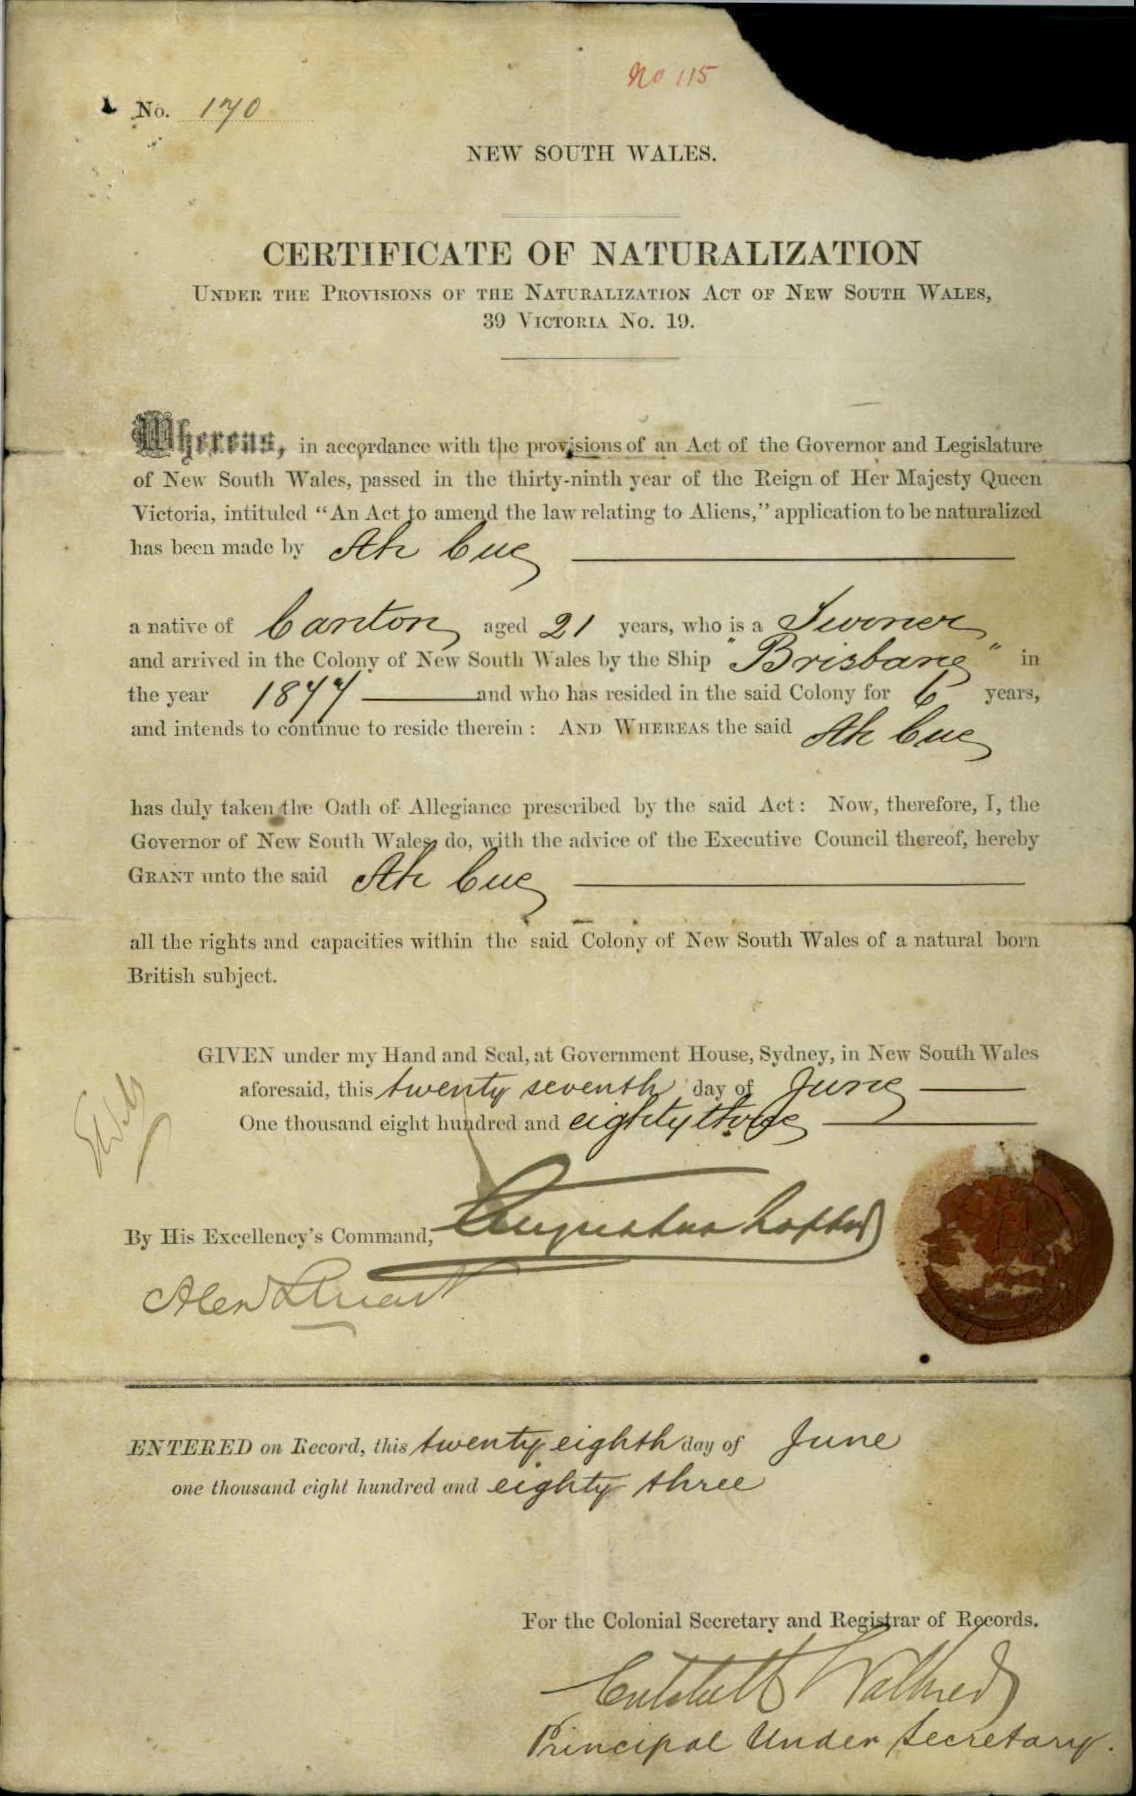 No 115
No. 170
NEW SOUTH WALES.
CERTIFICATE OF NATURALIZATION
UNDER THE PROVISIONS OF THE NATURALIZATION ACT OF NEW SOUTH WALES,
39 VICTORIA NO. 19.
Whereas, in accordance with the provisions of an Act of the Governor and Legislature
of New South Wales, passed in the thirty-ninth year of the Reign of Her Majesty Queen
Victoria, intituled “An Act to amend the law relating to Aliens,” application to be naturalized
has been made by Ah Cue
a native of Canton aged 21 years, who is a
and arrived in the Colony of New South Wales by the Ship "Brisbane" in
the year 1877 and who has resided in the said Colony for 6 years,
and intends to continue to reside therein : AND WHEREAS the said Ah Cue
has duly taken the Oath of Allegiance prescribed by the said Act: Now, therefore, I, the
Governor of New South Wales, do, with the advice of the Executive Council thereof, hereby
GRANT unto the said Ah Cue
all the rights and capacities within the said Colony of New South Wales of a natural born
British subject.
GIVEN under my Hand and Seal, at Government House, Sydney, in New South Wales
aforesaid, this twenty seventh day of June
One thousand eight hundred and eighty three
By His Excellency's Command, Augustus Loftus
Alex Stuart
ENTERED on Record, this twenty eighth day of June
one thousand eight hundred and eighty three
For the Colonial Secretary and Registrar of Records.
Critchett Walker
Principal Under Secretary.